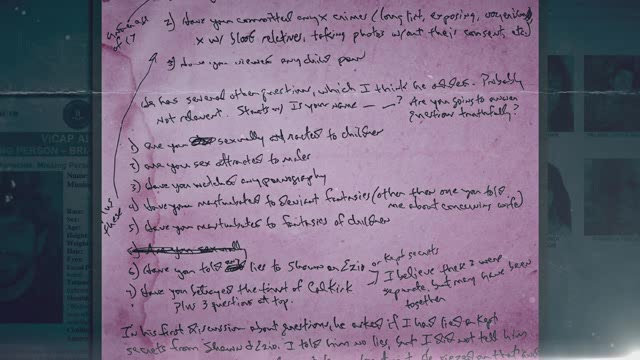 of (?
2) have you committed any x crimes (long list, exposing, voyeurism,
x w/ blood relatives, taking photos w/out their consent, etc)
3) have you viewed any child porn
He has several other questions, which I think he added. Probably
not relevant. Starts w/ Is your name — —? Are you going to answer
questions truthfully?
1) are you sexually attracted to children
2) are you sex attracted to males
3) have you watched any pornography
4) have you masturbated to deviant fantasies (other than one you told
me about concerning wife)
5) have you masturbated to fantasies of children
6) have you told any lies to Shawn or Ezio or kept secrets
7) have you betrayed the trust of Col Kirk
I believe these 2 were
separate, but may have been
together
Plus 3 questions at top.
In his first discussion about questions, he asked if I had lied or kept
secrets from Shawn & Ezio. I told him no lies, but I did not tell him
VICAP AL
NG PERSON - BRI
Name:
Race:
Sex:
Age:
Height:
Weight:
Hair:
Eyes: